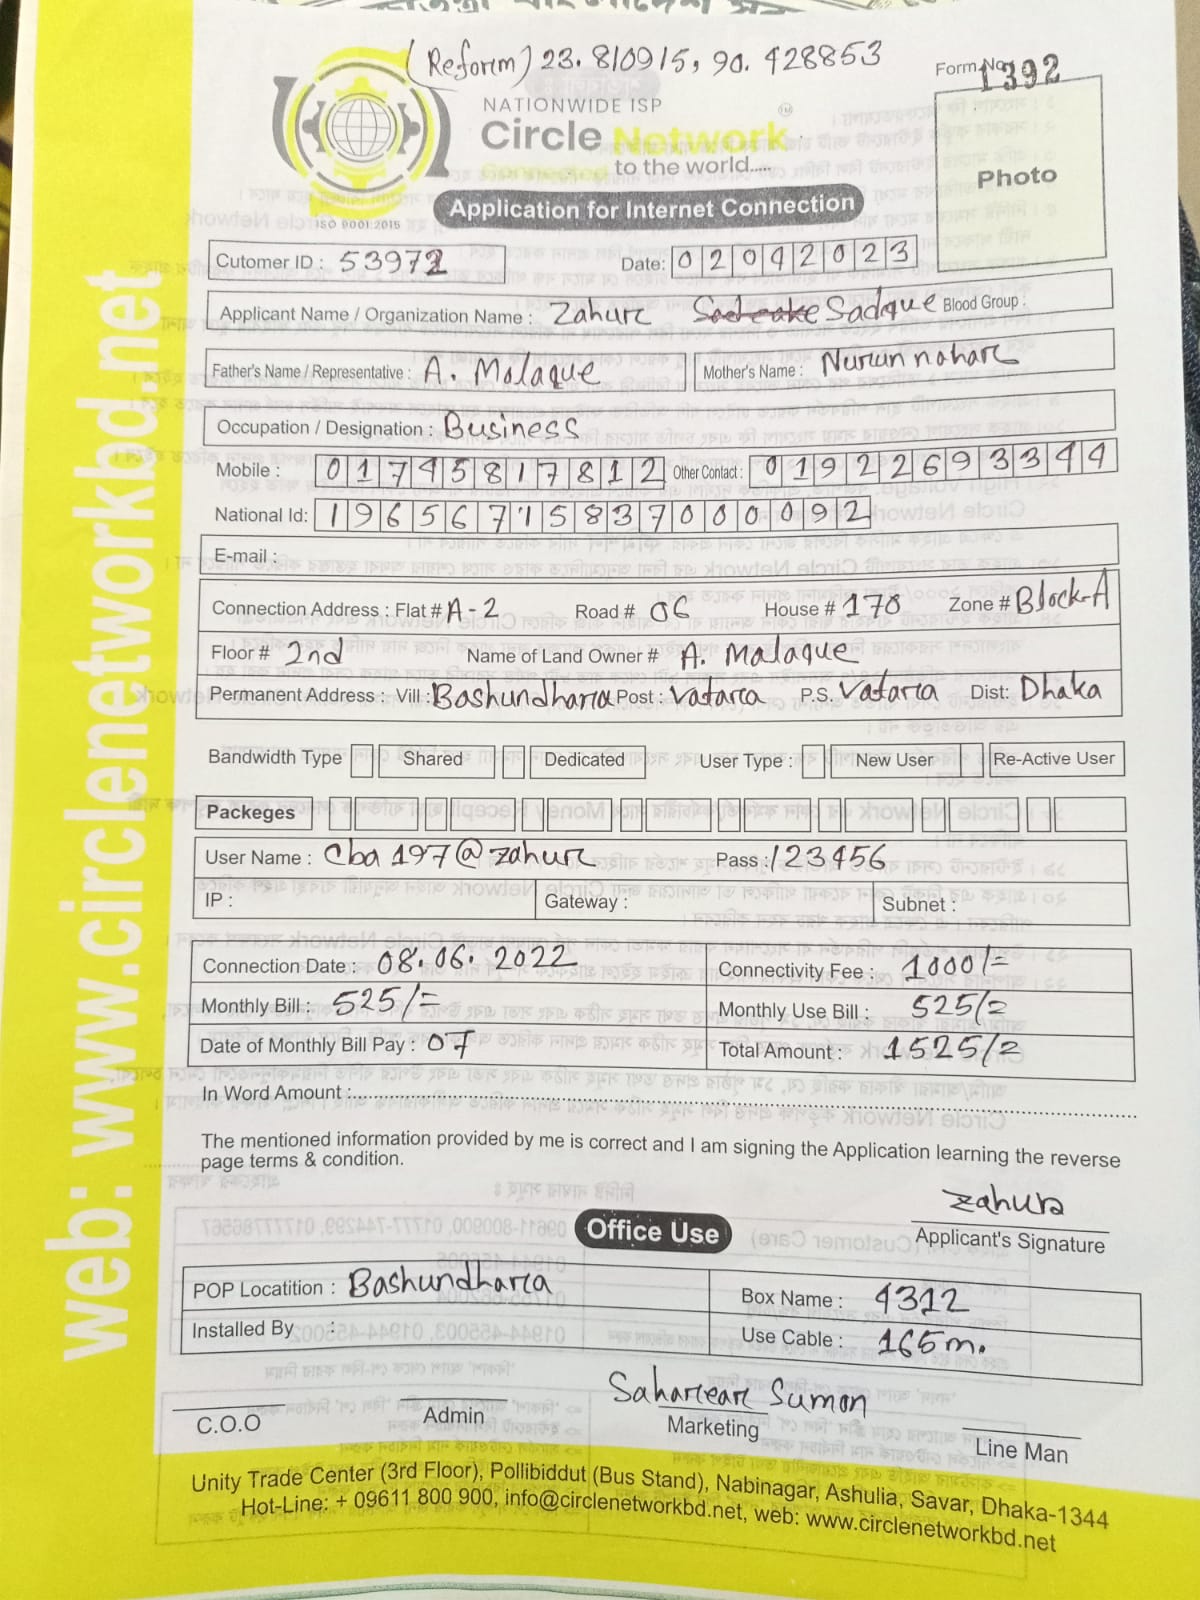 (Reform) 23.810915, 90.428853
Form No. 1392
NATIONWIDE ISP
Circle Network
to the world.....
ISO 9001:2015
Photo
Application for Internet Connection
Cutomer ID : 53972 Date: 02042023
Applicant Name / Organization Name : Zahur Sadque Blood Group :
Father's Name / Representative : A. Malaque Mother's Name : Nurun nahar
Occupation / Designation : Business
Mobile : 01745817812 Other Contact : 01922693344
National Id: 19656715837000092
E-mail :
Connection Address : Flat # A-2 Road # 06 House # 170 Zone # Block-A
Floor # 2nd Name of Land Owner # A. Malaque
Permanent Address : Vill : Bashundhara Post : Vatara P.S. Vatara Dist: Dhaka
Bandwidth Type Shared Dedicated User Type : New User Re-Active User
Packeges
User Name : Cba197@zahur Pass : 123456
IP : Gateway : Subnet :
Connection Date : 08.06.2022 Connectivity Fee : 1000/=
Monthly Bill : 525/= Monthly Use Bill : 525/=
Date of Monthly Bill Pay : 07 Total Amount : 1525/=
In Word Amount :
The mentioned information provided by me is correct and I am signing the Application learning the reverse
page terms & condition.
Zahur
Applicant's Signature
Office Use
POP Locatition : Bashundhara Box Name : 4312
Installed By : Use Cable : 165m.
Sahariear Sumon
C.O.O Admin Marketing Line Man
Unity Trade Center (3rd Floor), Pollibiddut (Bus Stand), Nabinagar, Ashulia, Savar, Dhaka-1344
Hot-Line: + 09611 800 900, info@circlenetworkbd.net, web: www.circlenetworkbd.net
web: www.circlenetworkbd.net